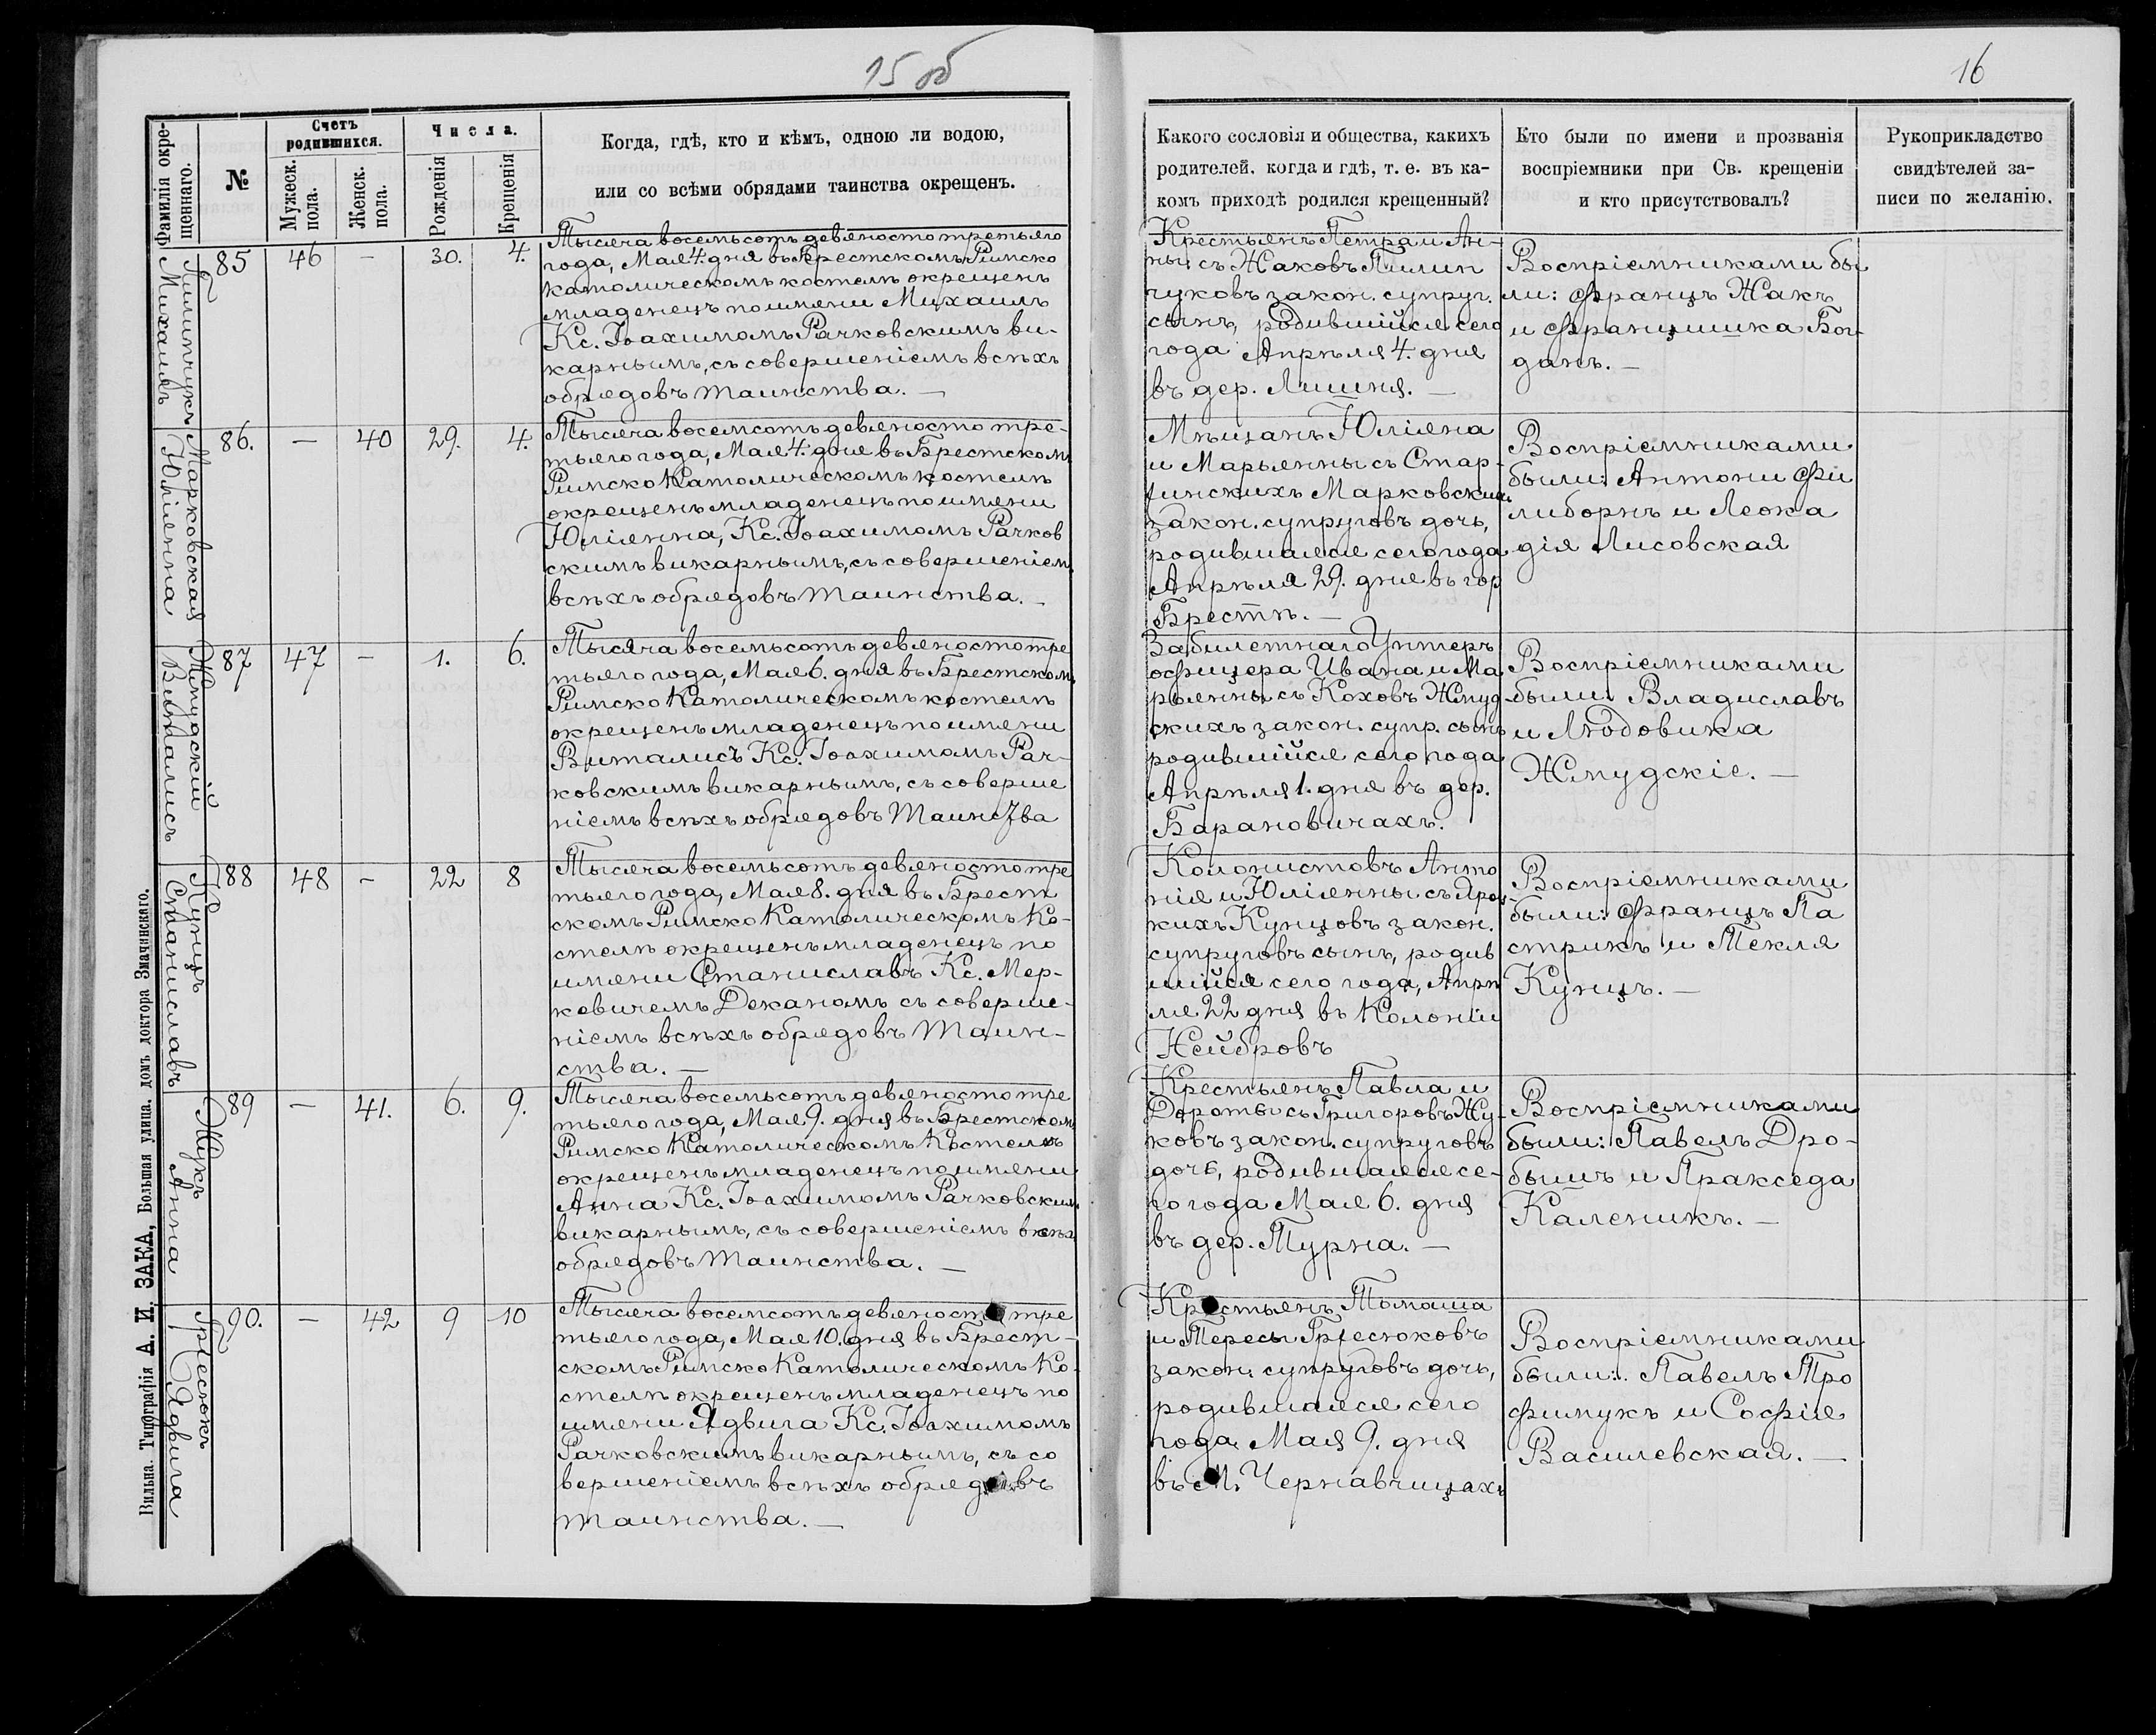 15 об
16
Фамилія окре-
щеннаго.
№
Счетъ
родившихся.
Мужеск.
пола.
Женск.
пола.
Числа.
Рожденія
Крещенія
Когда, гдѣ, кто и кѣмъ, одною ли водою,
или со всѣми обрядами таинства окрещенъ.
Какого сословія и общества, какихъ
родителей. когда и гдѣ, т. е. въ ка-
комъ приходѣ родился крещенный?
Кто были по имени и прозванія
воспріемники при Св. крещеніи
и кто присутствовалъ?
Рукоприкладство
свидѣтелей за-
писи по желанію.
Пилипчукъ
Михаилъ
85 46 — 30. 4.
Тысяча восемьсотъ девяносто третьяго
года, Мая 4. дня въ Брестскомъ Римско
Католическомъ костелѣ окрещенъ
младенецъ по имени Михаилъ
Кс. Іоахимомъ Рачковскимъ ви-
карнымъ, съ совершеніемъ всѣхъ
обрядовъ таинства. —
Крестьянъ Петра и Ан-
ны съ Жаковъ Пилип
чуковъ закон. супруг.
сынъ, родившійся сего
года Апрѣля 4. дня
въ дер. Лишня. —
Воспріемниками бы
ли: Францъ Жакъ
и Францишка Бог-
данъ. —
Марковская
Юліянна
86. — 40 29. 4.
Тысяча восемсотъ девяносто тре-
тьяго года, Мая 4. дня въ Брестскомъ
Римско Католическомъ костелѣ
окрещенъ младенецъ по имени
Юліянна, Кс. Іоахимомъ Рачков
скимъ викарнымъ, съ совершеніемъ
всѣхъ обрядовъ таинства. —
Мѣщанъ Юліяна
и Марьянны съ Стар-
жинскихъ Марковскихъ
закон. супруговъ дочь,
родившаяся сего года
Апрѣля 29. дня въ гор
Брестѣ. —
Воспріемниками
были: Антони Фи
либорнъ и Леока
дія Лисовская
Жмудскій
Виталисъ
87 47 — 1. 6.
Тысяча восемьсотъ девяносто тре
тьяго года, Мая 6. дня въ Брестскомъ
Римско Католическомъ костелѣ
окрещенъ младенецъ по имени
Виталисъ Кс. Іоахимомъ Рач-
ковскимъ викарнымъ, съ соверше
ніемъ всѣхъ обрядовъ Таинства
Забилетнаго Унтеръ
офицера Ивана и Ма
рьянны съ Коховъ Жмуд
скихъ закон. супр. сынъ
родившійся сего года
Апрѣля 1. дня въ дер.
Барановичахъ.
Воспріемниками
были Владиславъ
и Людовика
Жмудскіе. —
Кунцъ
Станиславъ
88 48 — 22 8
Тысяча восемьсотъ девяносто тре
тьяго года, Мая 8. дня въ Брест
скомъ Римско Католическомъ Ко-
стелѣ окрещенъ младенецъ по
имени Станиславъ Кс. Мер-
кевичемъ Деканомъ съ соверше-
ніемъ всѣхъ обрядовъ Таин-
ства. —
Колонистовъ Анто
нія и Юліянны съ
кихъ Кунцовъ закон.
супруговъ сынъ, родив
шійся сего года, Апрѣ
ля 22 дня въ Колоніи
Нейбровъ
Воспріемниками
были: Францъ Па
стрикъ и Текля
Кунцъ. —
Жукъ
Анна
89 — 41. 6. 9.
Тысяча восемьсотъ девяносто тре
тьяго года, Мая 9. дня въ Брестскомъ
Римско Католическомъ Костелѣ
окрещенъ младенецъ по имени
Анна Кс. Іоахимомъ Рачковскимъ
викарнымъ, съ совершеніемъ всѣхъ
обрядовъ Таинства. —
Крестьянъ Павла и
Дороты съ Григоровъ Жу-
ковъ закон. супруговъ
дочь, родившаяся се-
го года Мая 6. дня
въ дер. Турна. —
Воспріемниками
были: Павелъ Дро-
бышъ и Пракседа
Каленикъ. —
Гресюкъ
Ядвига
90. — 42 9 10
Тысяча восемсотъ девяносто тре
тьяго года, Мая 10. дня въ Брест-
скомъ Римско Католическомъ Ко-
стелѣ окрещенъ младенецъ по
имени Ядвига Кс. Іоахимомъ
Рачковскимъ викарнымъ, съ со
вершеніемъ всѣхъ обрядовъ
таинства. —
Крестьянъ Томаша
и Тересы Гресюковъ
закон. супруговъ дочь,
родившаяся сего
года Мая 9. дня
въ М. Чернавчицахъ
Воспріемниками
были: Павелъ Тро
фимукъ и Софія
Василевская. —
Вильна. Типографія А. И. ЗАКА, Большая улица. домъ доктора Значинскаго.